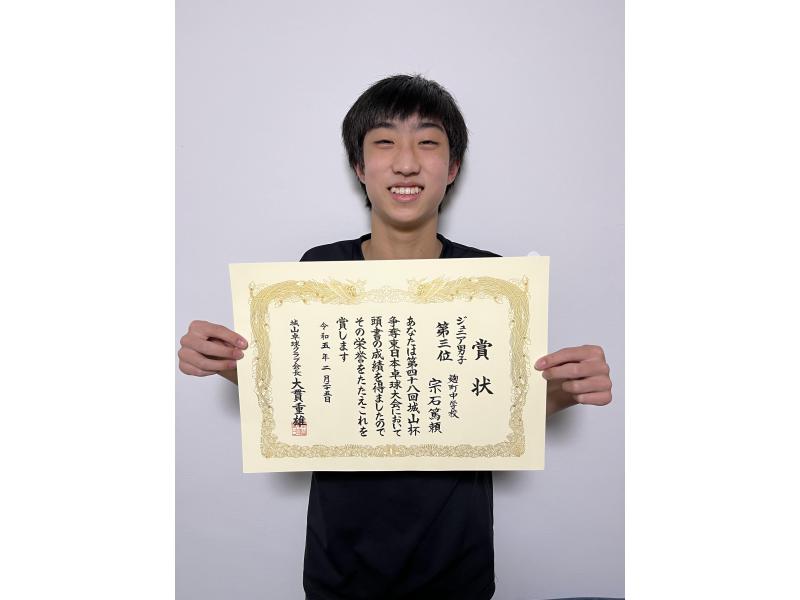 賞状
ジュニア男子
第三位
麹町中学校
宗石篤頼
あなたは第四十八回城山杯
争奪東日本卓球大会において
頭書の成績を得ましたので
その栄誉をたたえこれを
賞します
令和五年二月二五日
城山卓球クラブ会長
大貫重雄